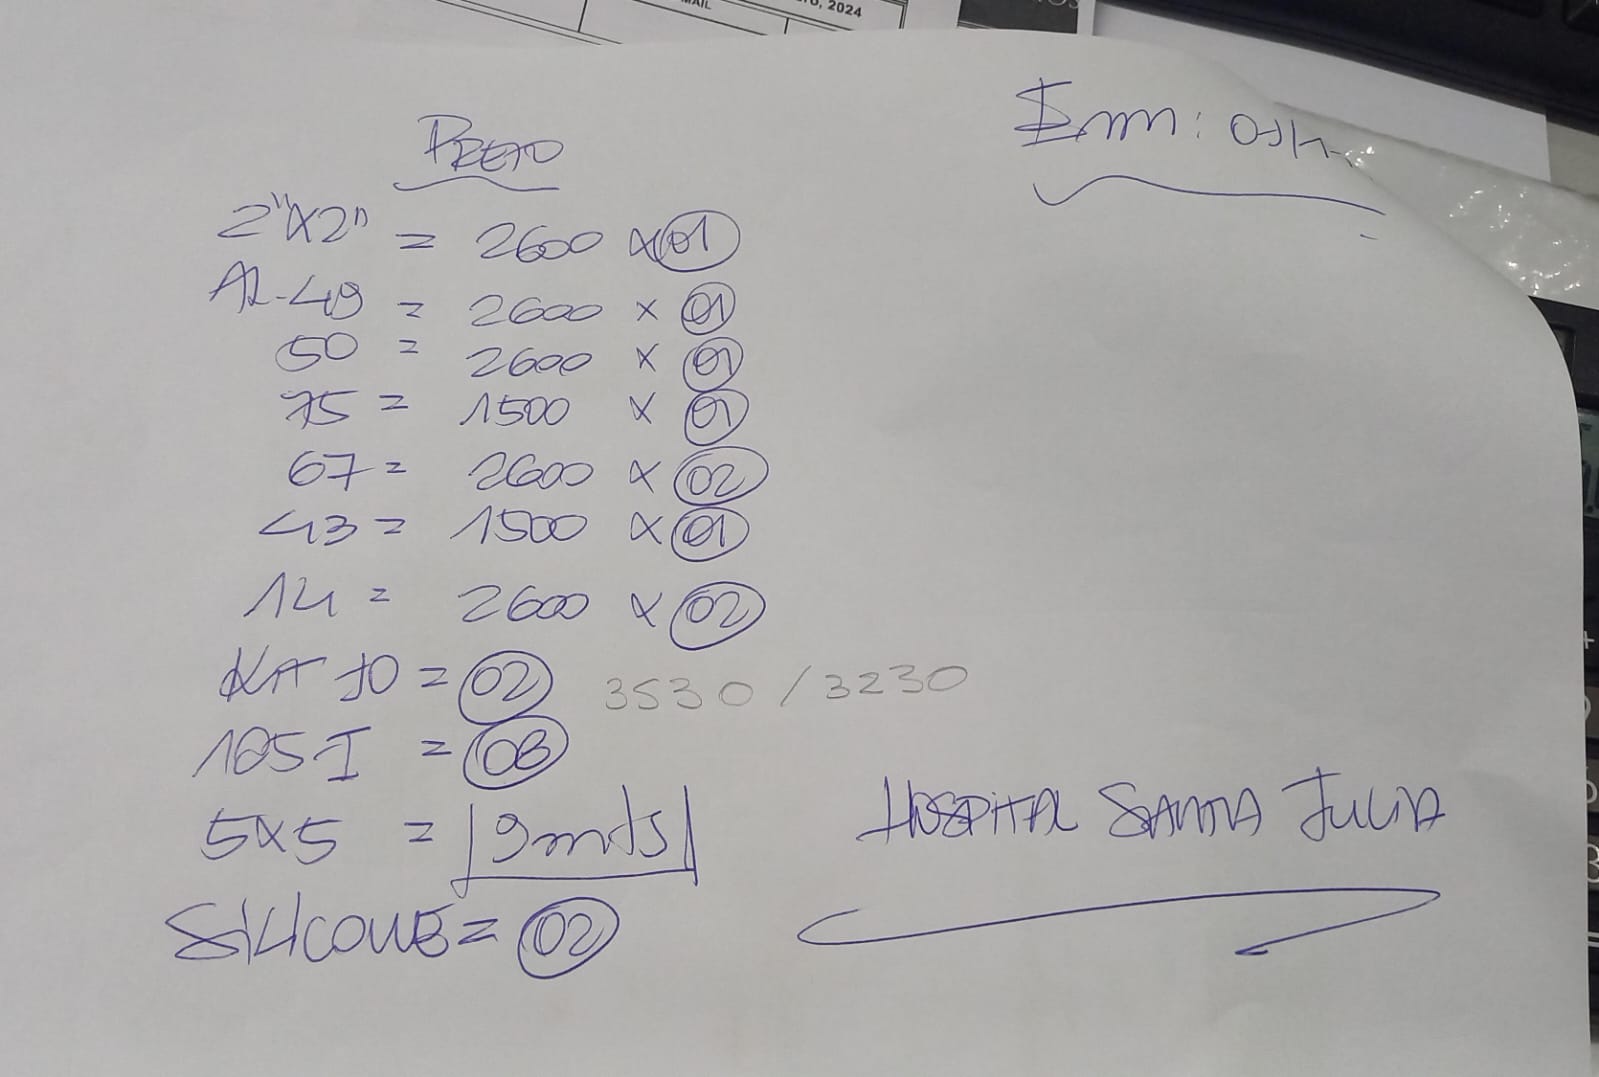 MAIL
, 2024
PRETO
2"X2" = 2600 x 01
AL-49 = 2600 x 01
50 = 2600 x 01
75 = 1500 x 01
67 = 2600 x 02
43 = 1500 x 01
14 = 2600 x 02
= 02 3530 / 3230
185 I = 08
5x5 = 9mts
SILICONE = 02
HOSPITAL SANTA JULIA